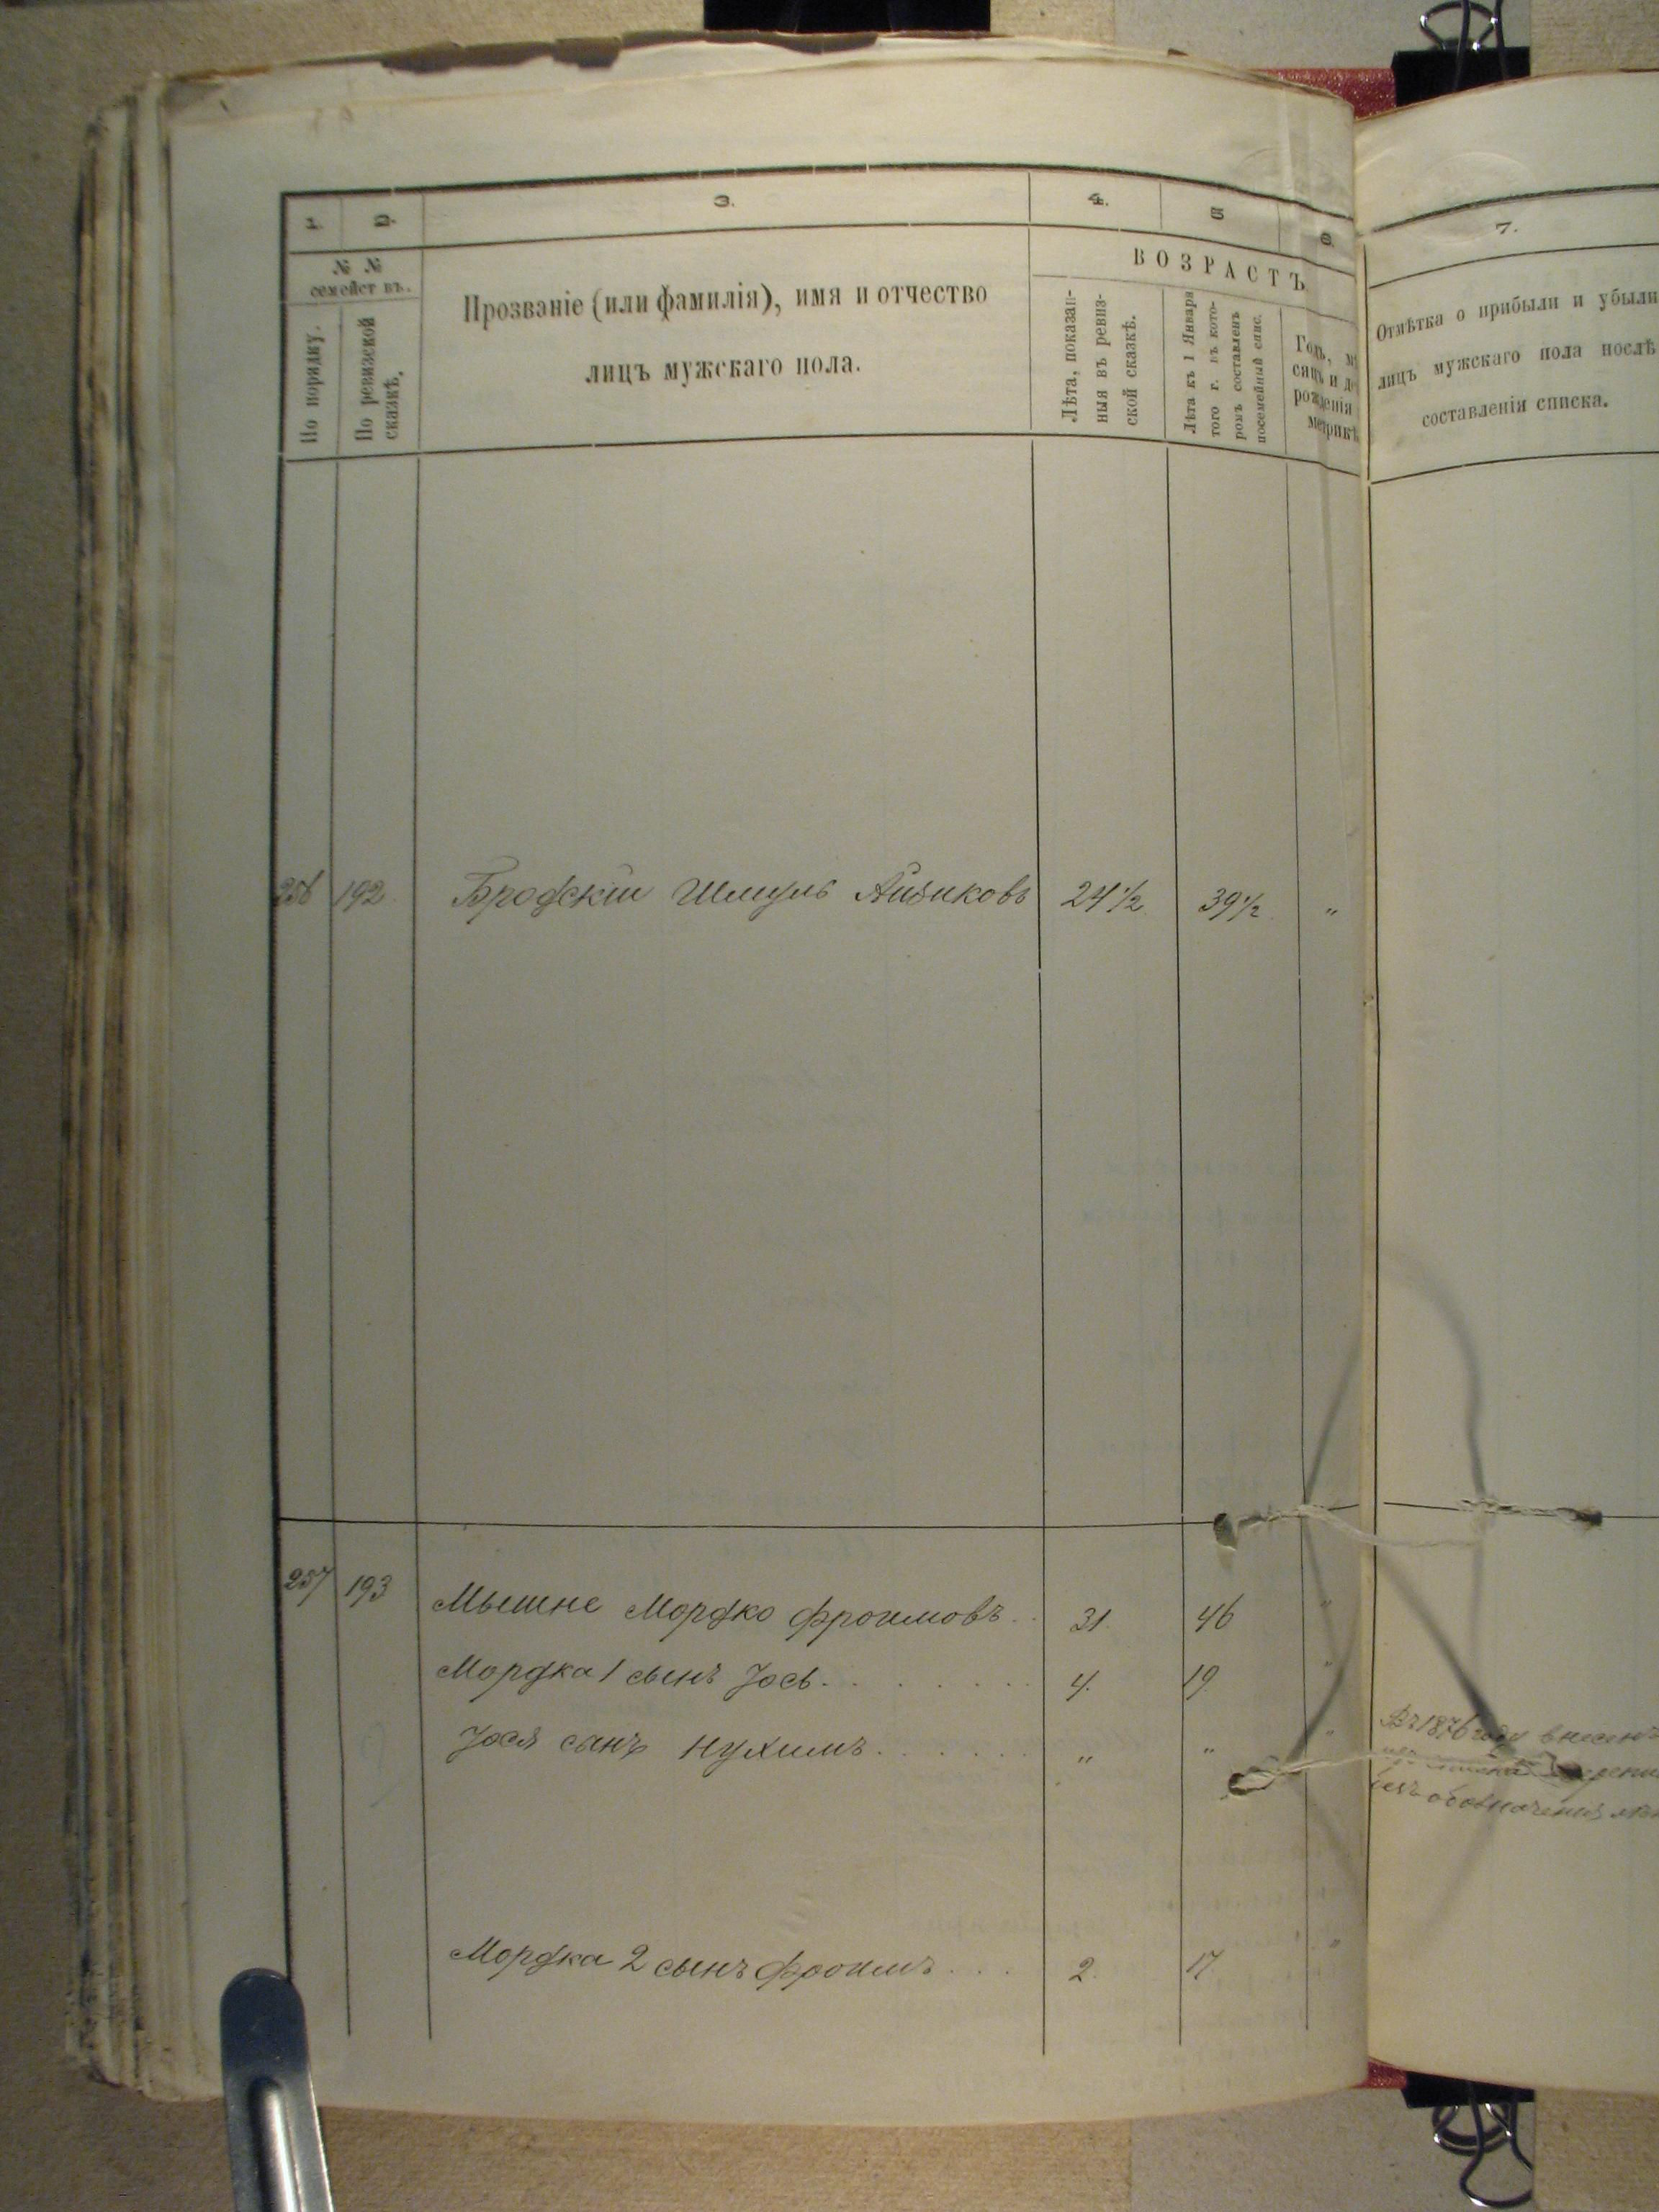 1. 2. 3. 4. 5 6. 7.
№ № семействъ.
По порядку.
По ревизской сказкѣ.
Прозваніе (или фамилія), имя и отчество
лицъ мужскаго пола.
ВОЗРАСТЪ
Лѣта, показан-
ныя въ ревиз-
ской сказкѣ.
Лѣта къ 1 Января
того г. въ кото-
ромъ составленъ
посемейный спис.
Годъ, мѣ
сяцъ и де
рожденія
метрикѣ
Отмѣтка о прибыли и убыли
лицъ мужскаго пола послѣ
составленія списка.
256 192 Бродскій Шмуль Айзиковъ 24½ 39½ „
257 193 Мышне Мордко Фроимовъ . . 31. 46 „
Мордка 1 сынъ Іось . . . . . . . 4. 19. „
Іося сынъ Нухимъ . . . . . . „ „ „
Въ 1876 году внесенъ
безъ обозначенія
Мордка 2 сынъ Фроимъ . . . 2. 17 „